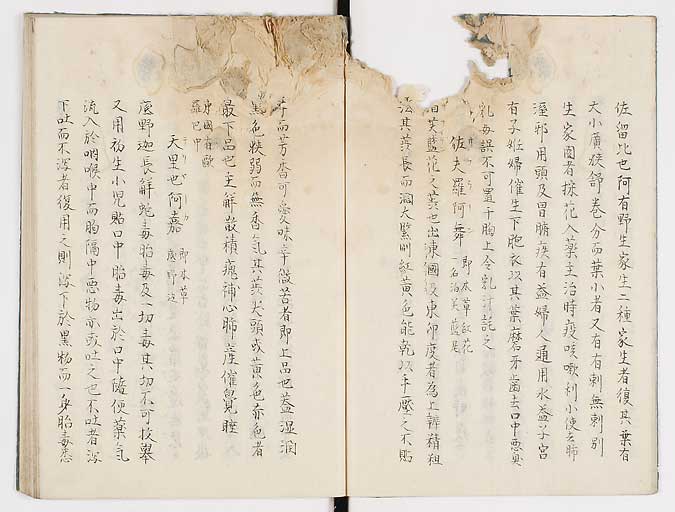 佐留比也阿有野生家生二種家生者復其葉有
大小廣狹舒巻分而葉小者又有有刺無刺別
生家園者採花入藥主治時疫咳嗽利小便去肺
濕邪用頭及胃腑疾有益婦人通用水益子宮
有子妊婦催生下胞衣以其葉磨牙齒去口中悪臭
乳母誤不可置于胸上令乳汁託之
佐夫羅何舞 即本草紅花
一名泊芙藍是
泊芙藍花之蕊也出凍國及東印度者為上辨精粗
法其蕊長而濶大緊䏈紅黄色能乾以手壓之不貼
手而芳香可愛味辛微苦者即上品也蓋湿潤
黒色狹弱而無香氣其蕊尖頭或黄色亦色者
最下品也主解欝積瘣補心肺産催覺睡
東國在歐
羅巴中
天里也阿嘉 即本草
底野迦
底野迦長解蛇毒胎毒及一切毒其功不可枚舉
又用初生小児貼口中胎毒出於口中隨便藥氣
流入於咽喉中而胸隔中悪物亦或吐之也不吐者瀉
下吐而不瀉者復用之則瀉下於黒物而一身胎毒悉